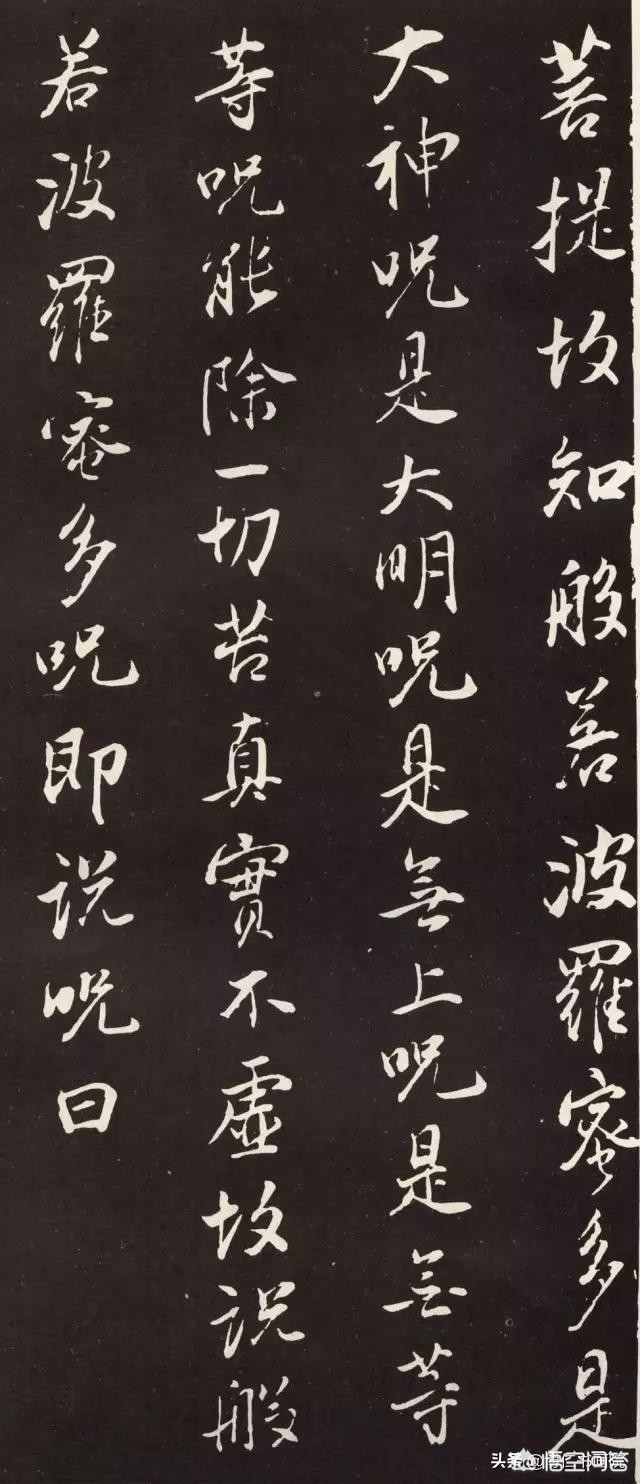 菩提故知般若波羅蜜多是
大神呪是大明呪是無上呪是無等
等呪能除一切苦真實不虛故說般
若波羅蜜多呪即說呪曰
头条